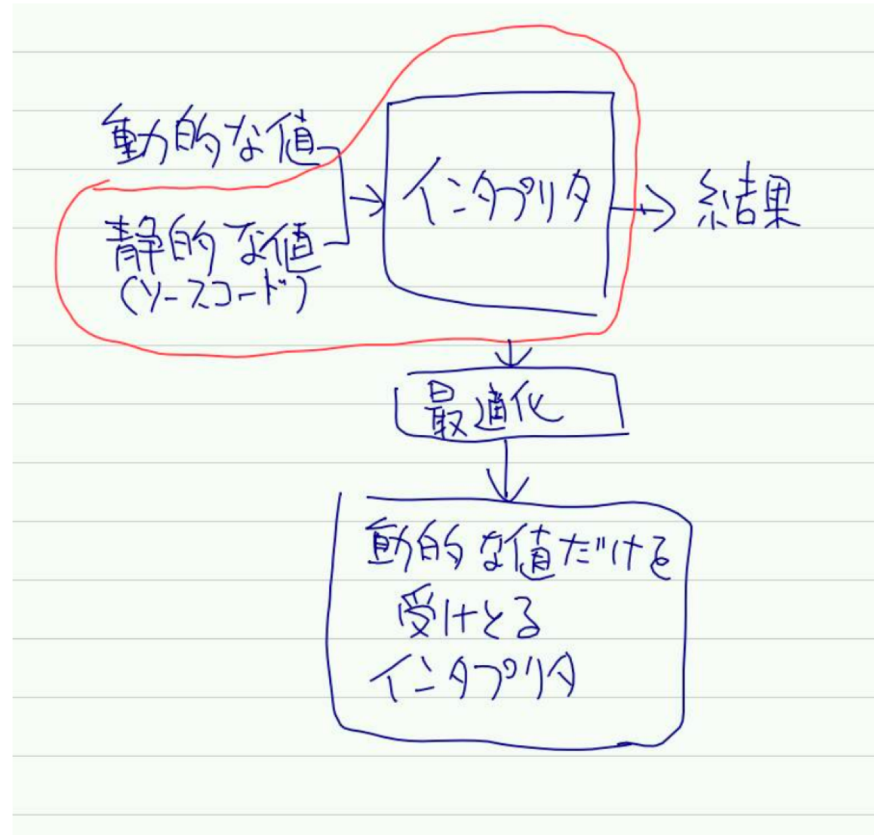 動的な値
静的な値
(ソースコード)
インタプリタ
結果
最適化
動的な値だけを
受けとる
インタプリタ